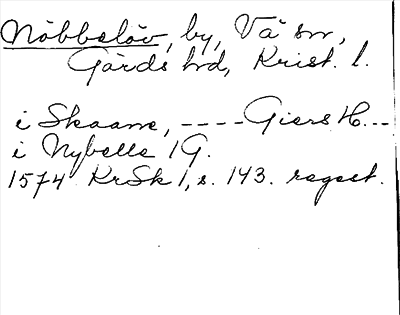 Nöbbelöv, by, Vä sn,
Gärds hd, Krist. l.
i Skaane, ---- Giers H. --
i Nybelle 1 G.
1574 KrSk 1, s. 143. regest.